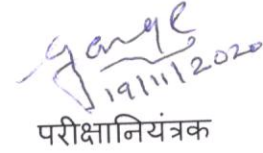 19/11/2020
परीक्षानियंत्रक